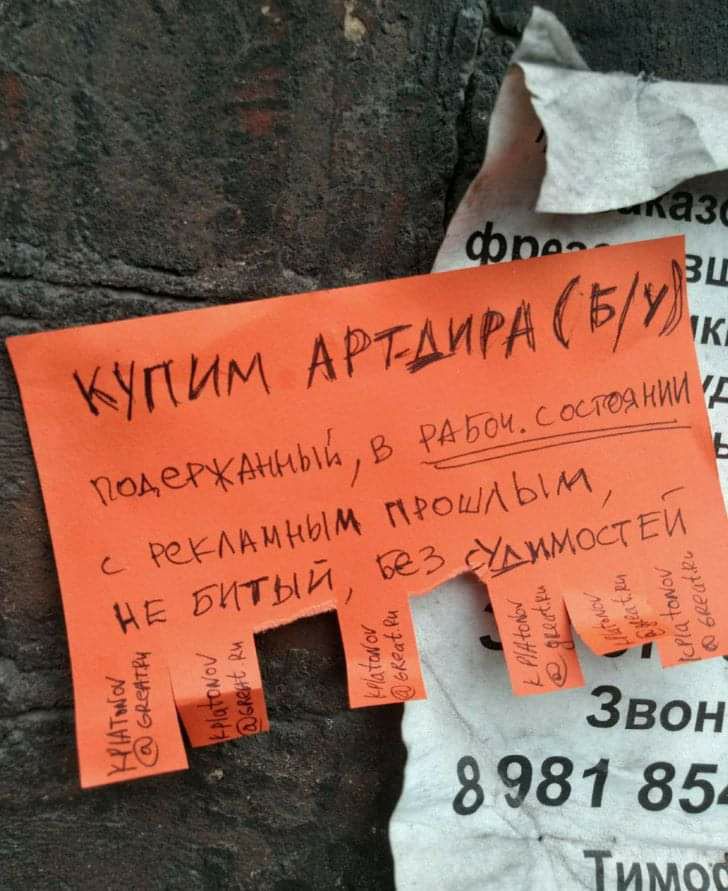 КУПИМ АРТ-ДИРА (Б/У)
ПОДЕРЖАННЫЙ, В РАБОЧ. СОСТОЯНИИ
С РЕКЛАМНЫМ ПРОШЛЫМ,
НЕ БИТЫЙ, БЕЗ СУДИМОСТЕЙ
KPlATONOV
@GREAT.RU
KPlatONOV
@GREAt.RU
KPlatoNoV
@GReat.Ru
KPlAtoNoV
@great.ru
KPlatoNoV
@great.Ru
KPlatoNoV
@GREat.Ru
Звон
8 981 85
Тимоф